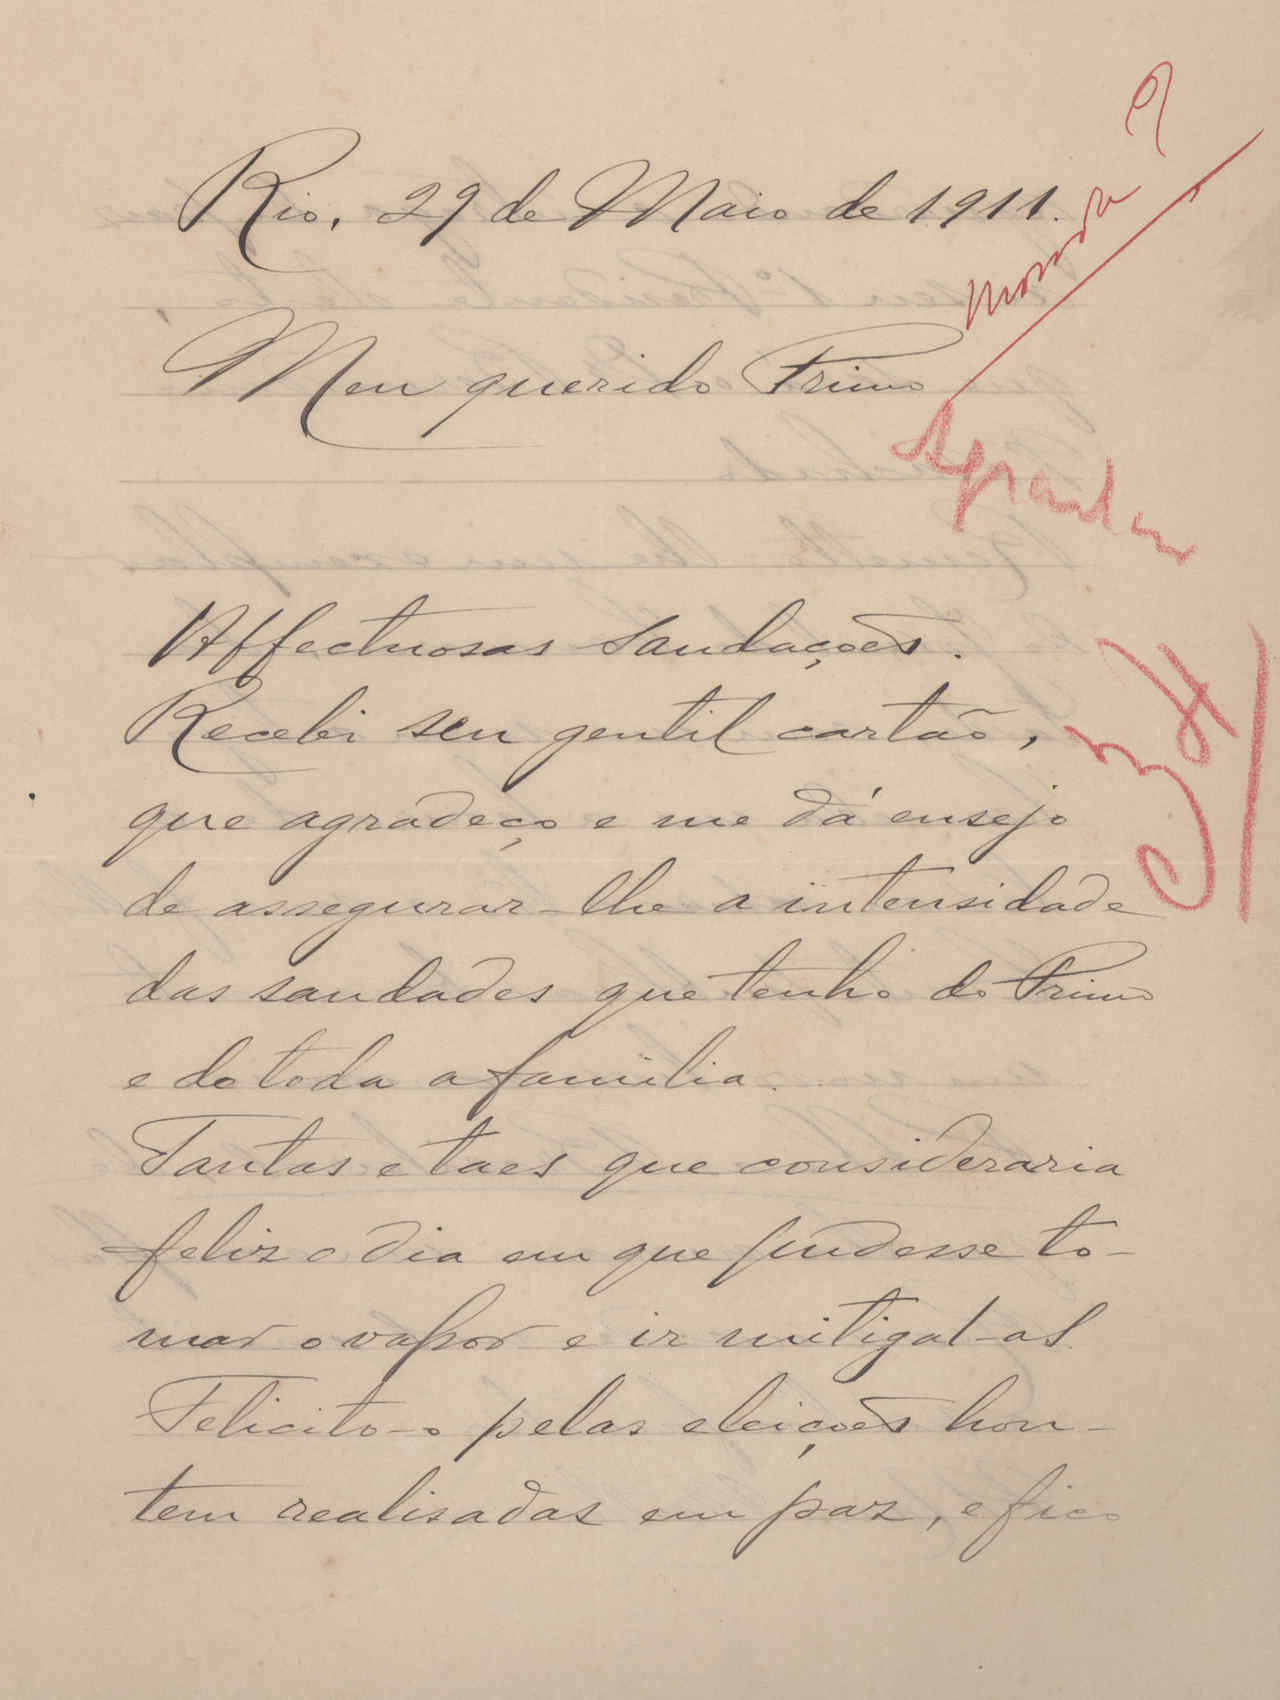 Rio, 29 de Maio de 1911.
Morada ?
Meu querido Primo
Affectuosas saudações.
Recebi seu gentil cartão,
que agradeço e me dá ensejo
de assegurar-lhe a intensidade
das saudades que tenho do Primo
e de toda a familia.
Tantas e taes que consideraria
feliz o dia em que pudesse to-
mar o vapor e ir mitigal-as.
Felicito-o pelas eleições hon-
tem realisadas em paz, e fico